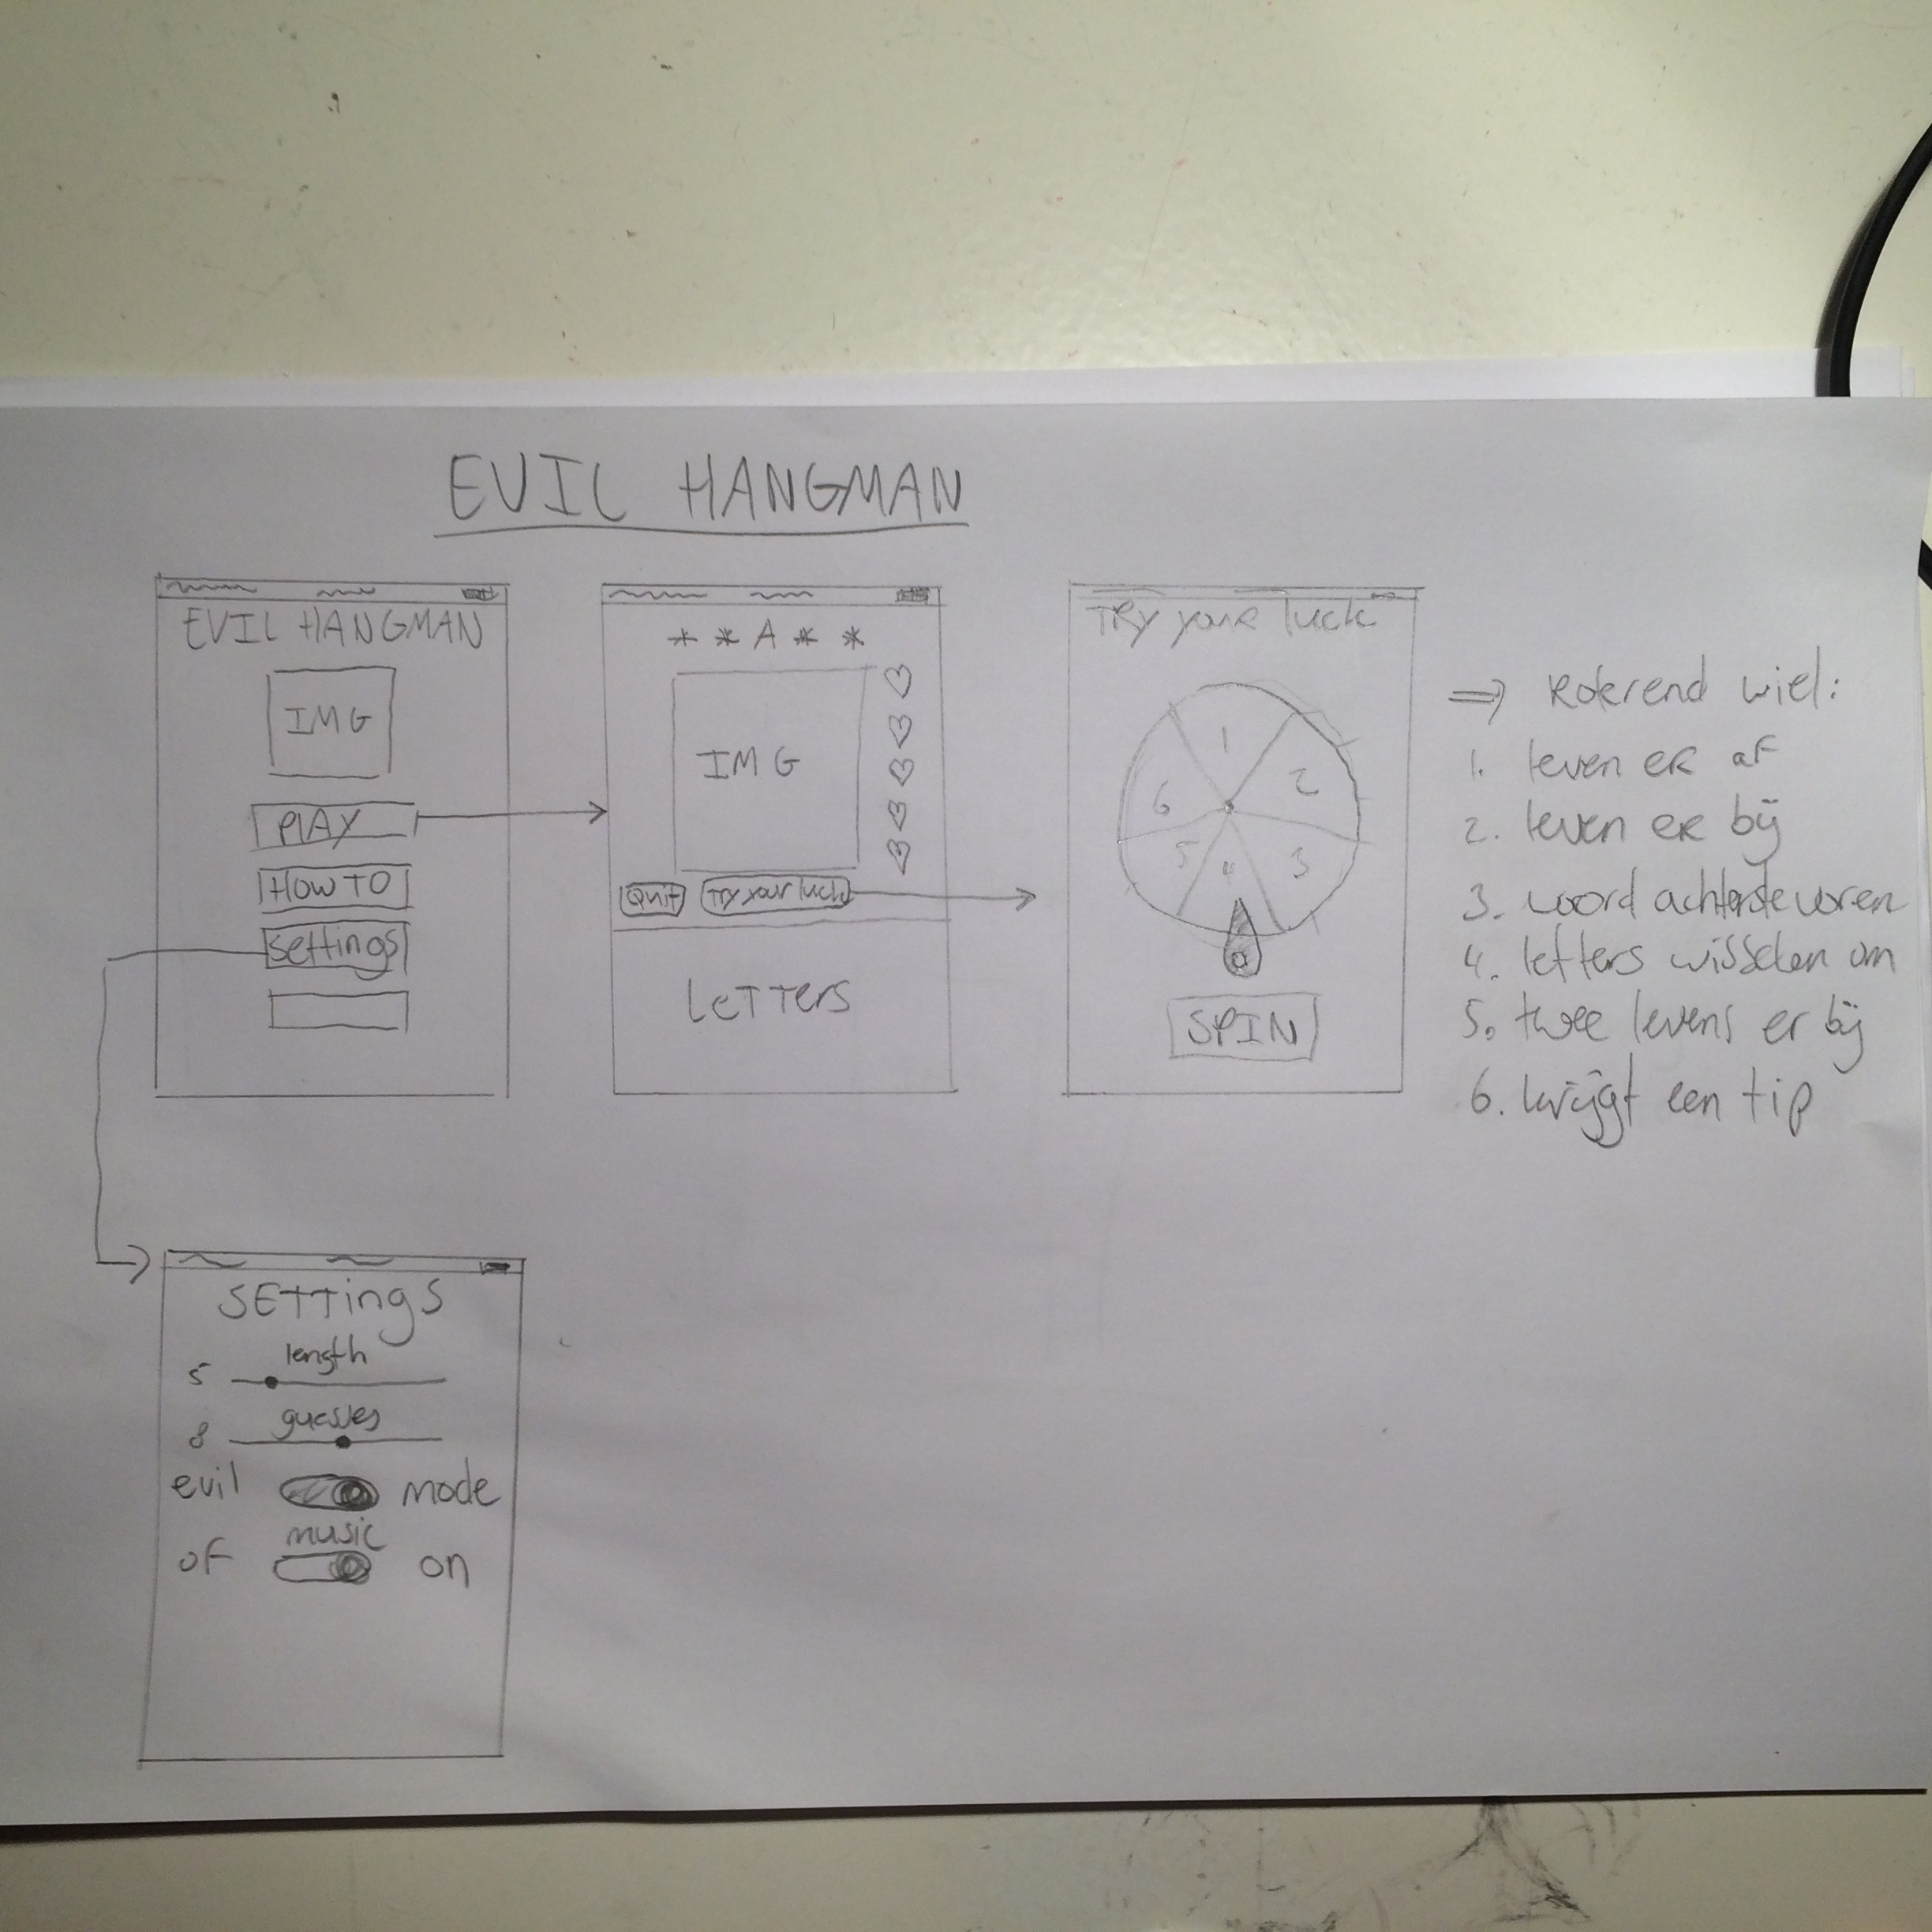 EVIL HANGMAN
EVIL HANGMAN
IMG
PLAY
HOW TO
settings
* * A * *
IMG
Quit
Try your luck
LETTERS
TRY youR luck
1
2
3
4
5
6
SPIN
⇒ Roterend wiel:
1. leven ER af
2. leven ER bij
3. woord achterstevoren
4. letters wisselen om
5. twee levens er bij
6. krijgt een tip
SETTings
length
5
guesses
8
evil mode
music
of on